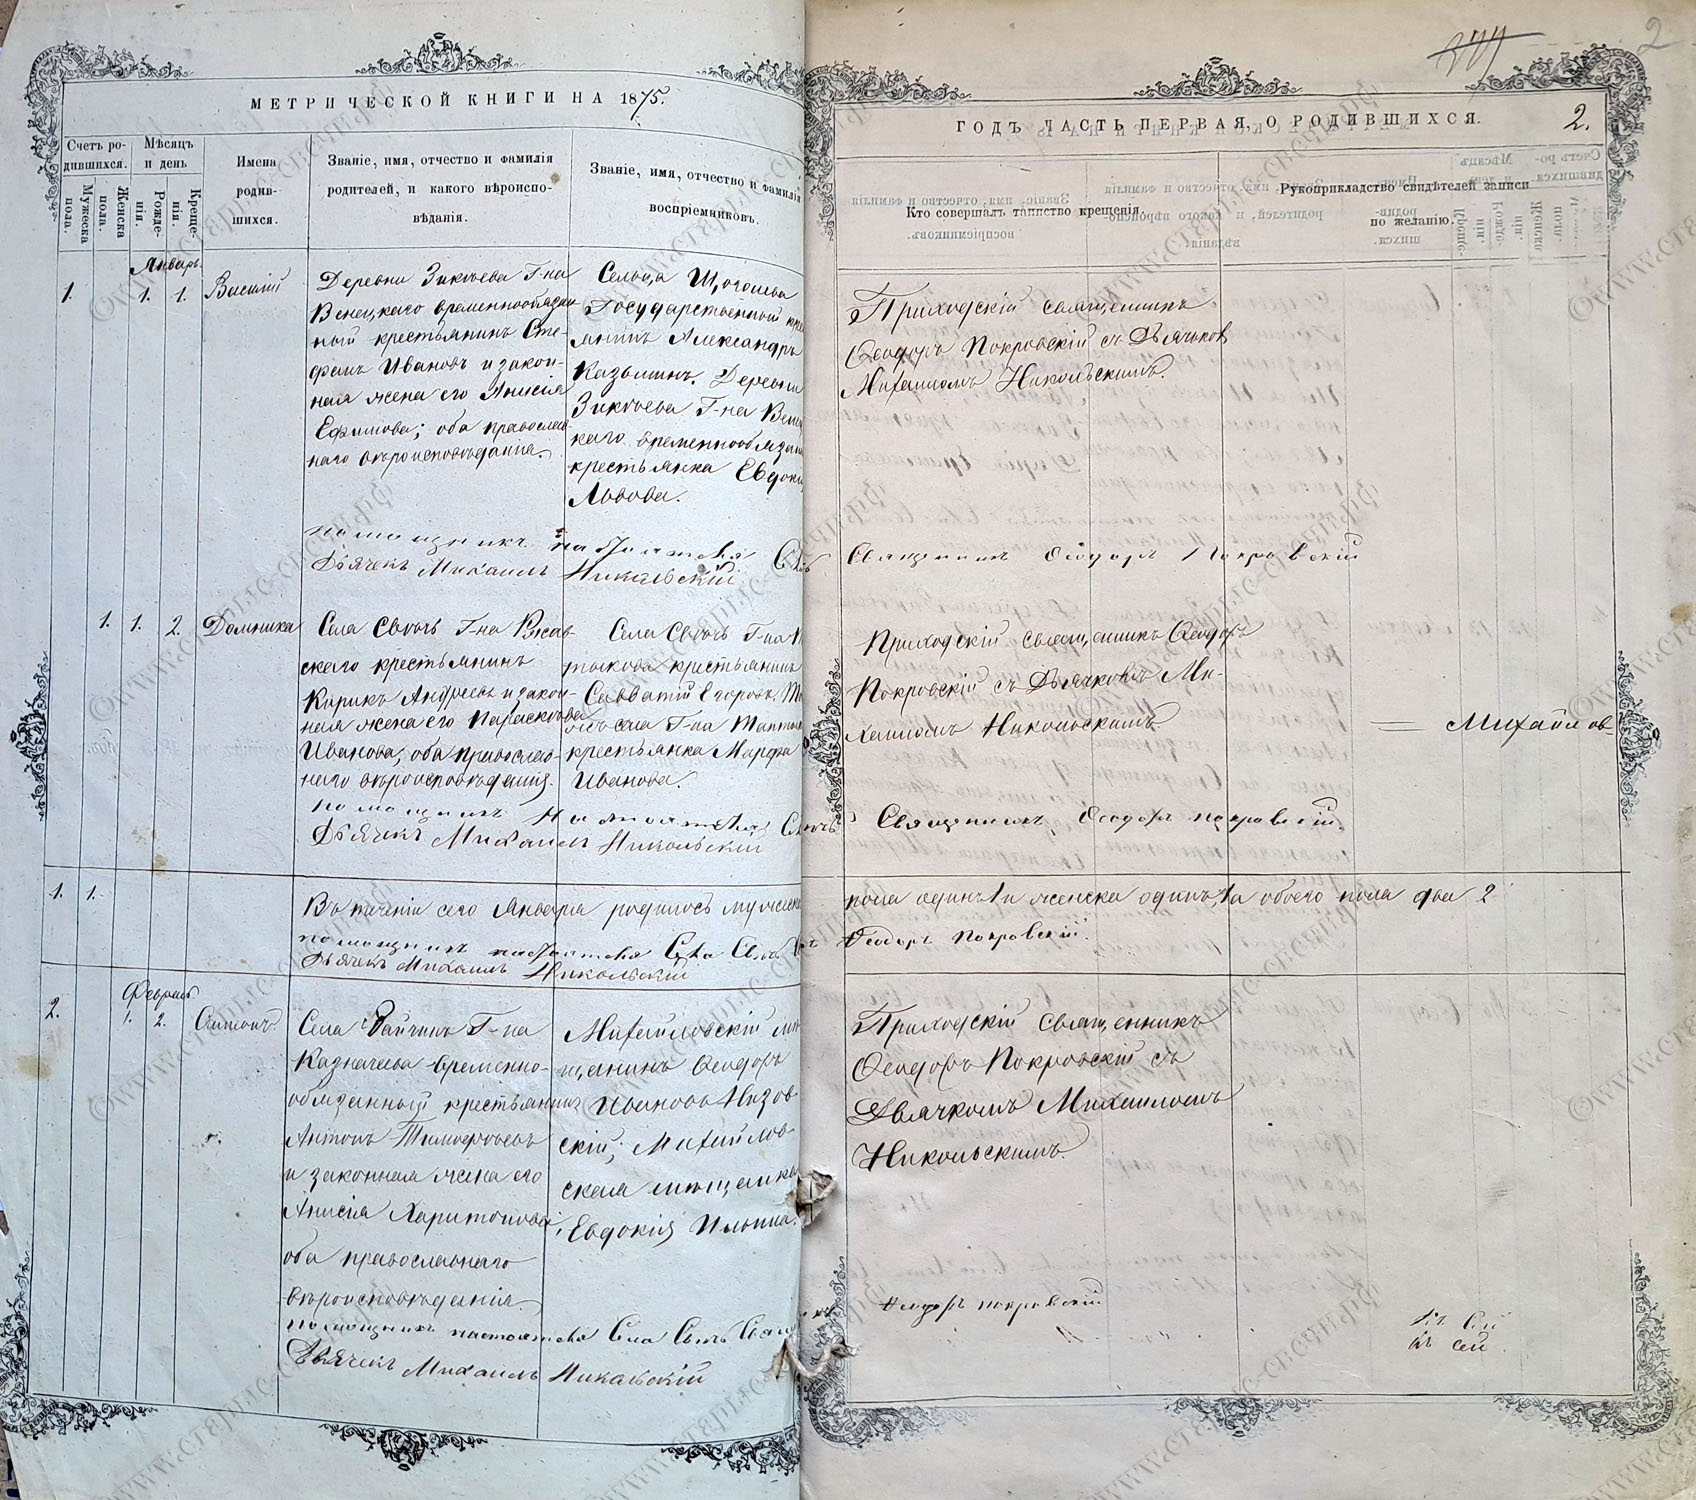 МЕТРИЧЕСКОЙ КНИГИ НА 1875.
Счетъ ро-
дившихся.
Мужеска
пола.
Женска
пола.
Мѣсяцъ
и день
Рожде-
нія.
Креще-
нія.
Имена
родив-
шихся.
Званіе, имя, отчество и фамилія
родителей, и какого вѣроиспо-
вѣданія.
Званіе, имя, отчество и фамилія
воспріемниковъ.
Январь
1. 1. 1. Василій
Деревни Г-на
Венецкаго временнообязан
ный крестьянинъ Сте-
фанъ Ивановъ и закон-
ная жена его Анисія
Ефимова; оба православ
наго вѣроисповѣданія.
Сельца Щоголева
Государственный кре
янинъ Александръ
Казьминъ. Деревни
Г-на Венец
каго временнообязан
крестьянка Евдокі
Львова.
помощникъ настоятеля
Дьячекъ Михаилъ Никольскій
1. 1. 2. Домника
Села Сво͏тъ Г-на Ржев-
скаго крестьянинъ
Кирикъ Андреевъ и закон-
ная жена его Параскева
Иванова, оба православ-
наго вѣроисповѣданія.
Села Г-на
крестьянинъ
Савватій Егоровъ.
села Г-на
крестьянка Марфа
Иванова.
помощникъ настоятеля
Дьячекъ Михаилъ Никольскій
1. 1.
Въ теченіи сего Января родилось мужеска
помощникъ настоятеля Села
Дьячекъ Михаилъ Никольскій
Февраль
2. 1. 2. Антонъ.
Села Г-на
Казначеева временно-
обязанный крестьянинъ
Антонъ Тимофеевъ
и законная жена его
Анисія Харитонова;
оба православнаго
вѣроисповѣданія.
Михайловскій мѣ
щанинъ Ѳеодоръ
Ивановъ Низов
скій; Михайлов-
ская мещанка
Евдокія Ильина.
помощникъ настоятеля Села
Дьячекъ Михаилъ Никольскій
2
2.
ГОДЪ ЧАСТЬ ПЕРВАЯ, О РОДИВШИХСЯ.
Кто совершалъ таинство крещенія.
Рукоприкладство свидѣтелей записи
по желанію.
Приходскій священникъ
Ѳеодоръ Покровскій съ Дьячком
Михаиломъ Никольскимъ.
Священникъ Ѳеодоръ Покровскій
Приходскій священникъ Ѳеодоръ
Покровскій съ Дьячкомъ Ми-
хаиломъ Никольскимъ
Михайлов
Священникъ Ѳеодоръ покровскій.
пола одинъ 1 и женска одинъ, 1 а обоего пола два 2
Ѳеодоръ покровскій.
Приходскій священникъ
Ѳеодоръ Покровскій съ
Дьячкомъ Михаиломъ
Никольскимъ.
Ѳеодоръ покровскій
къ сей
къ сей
©www.старые-свечи.рф